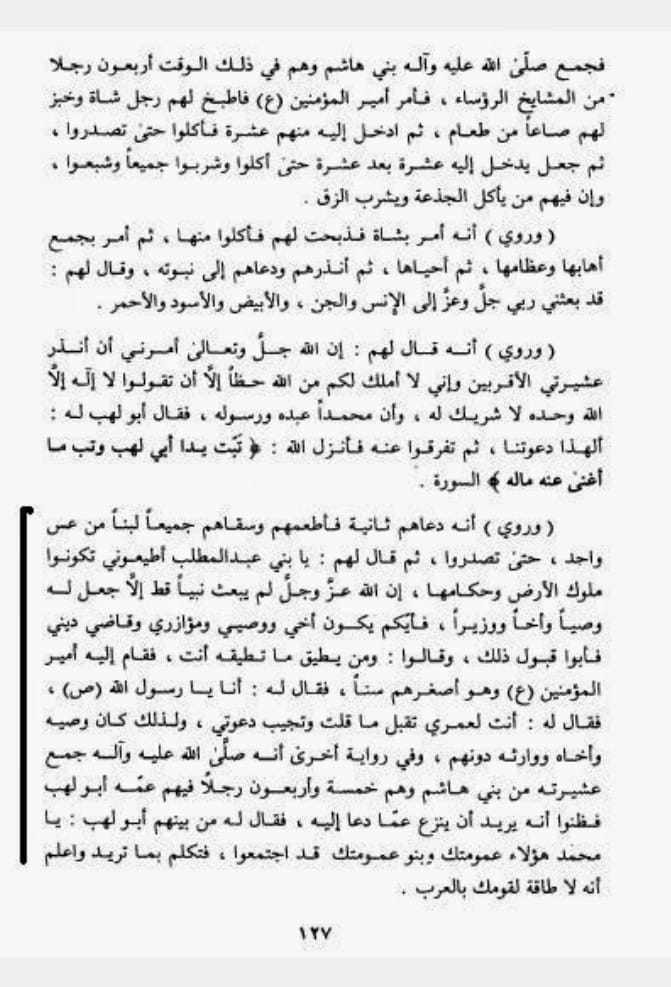 فجمع صلّى الله عليه وآله بني هاشم وهم في ذلك الوقت أربعون رجلا
من المشايخ الرؤساء ، فأمر أمير المؤمنين (ع) فاطبخ لهم رجل شاة وخبز
لهم صاعاً من طعام ، ثم ادخل إليه منهم عشرة فأكلوا حتىٰ تصدروا ،
ثم جعل يدخل إليه عشرة بعد عشرة حتىٰ أكلوا وشربوا جميعاً وشبعوا ،
وإن فيهم من يأكل الجذعة ويشرب الزق .
( وروي ) أنه أمر بشاة فذبحت لهم فأكلوا منها ، ثم أمر بجمع
أهابها وعظامها ، ثم أحياها ، ثم أنذرهم ودعاهم إلى نبوته ، وقال لهم :
قد بعثني ربي جلَّ وعزَّ إلى الإنس والجن ، والأبيض والأسود والأحمر .
( وروي ) أنه قال لهم : إن الله جلَّ وتعالىٰ أمرني أن أنذر
عشيرتي الأقربين وإني لا أملك لكم من الله حظاً إلَّا أن تقولوا لا إلٓه إلَّا
الله وحده لا شريك له ، وأن محمداً عبده ورسوله ، فقال أبو لهب له :
ألهذا دعوتنا ، ثم تفرقوا عنه فأنزل الله : ﴿ تبّت يدا أبي لهب وتب ما
أغنىٰ عنه ماله ﴾ السورة .
( وروي ) أنه دعاهم ثانية فأطعمهم وسقاهم جميعاً لبناً من عس
واحد ، حتىٰ تصدروا ، ثم قال لهم : يا بني عبدالمطلب أطيعوني تكونوا
ملوك الأرض وحكامها ، إن الله عزَّ وجلَّ لم يبعث نبياً قط إلَّا جعل له
وصياً وأخاً ووزيراً ، فأيّكم يكون أخي ووصيي ومؤازري وقاضي ديني
فأبوا قبول ذلك ، وقالوا : ومن يطيق ما تطيقه أنت ، فقام إليه أمير
المؤمنين (ع) وهو أصغرهم سناً ، فقال له : أنا يا رسول الله (ص) ،
فقال له : أنت لعمري تقبل ما قلت وتجيب دعوتي ، ولذلك كان وصيه
وأخاه ووارثه دونهم ، وفي رواية أخرىٰ أنه صلَّىٰ الله عليه وآله جمع
عشيرته من بني هاشم وهم خمسة وأربعون رجلًا فيهم عمّه أبو لهب
فظنوا أنه يريد أن ينزع عمّا دعا إليه ، فقال له من بينهم أبو لهب : يا
محمد هؤلاء عمومتك وبنو عمومتك قد اجتمعوا ، فتكلم بما تريد واعلم
أنه لا طاقة لقومك بالعرب .
١٢٧